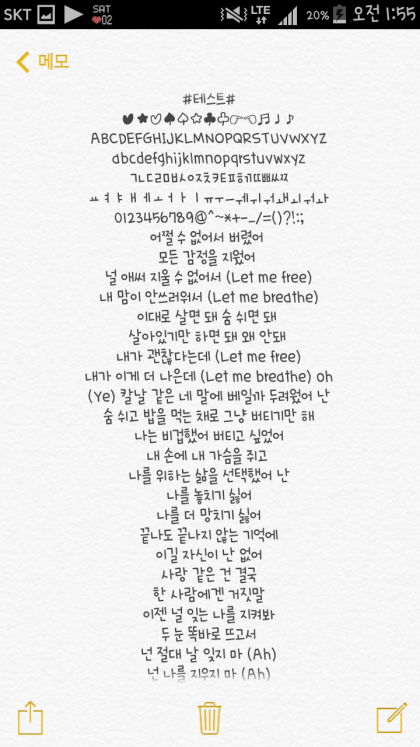 SKT SAT 02 LTE 20% 오전 1:55
메모
#테스트#
♥★♡♠♤☆♣♧☞☜♬♩♪
ABCDEFGHIJKLMNOPQRSTUVWXYZ
abcdefghijklmnopqrstuvwxyz
ㄱㄴㄷㄹㅁㅂㅅㅇㅈㅊㅋㅌㅍㅎㄲㄸㅃㅆㅉ
0123456789@^~*+-_/=()?!:;
어쩔 수 없어서 버렸어
모든 감정을 지웠어
널 애써 지울 수 없어서 (Let me free)
내 맘이 안쓰러워서 (Let me breathe)
이대로 살면 돼 숨 쉬면 돼
살아있기만 하면 돼 왜 안돼
내가 괜찮다는데 (Let me free)
내가 이게 더 나은데 (Let me breathe) oh
(Ye) 칼날 같은 네 말에 베일까 두려웠어 난
숨 쉬고 밥을 먹는 채로 그냥 버티기만 해
나는 비겁했어 버티고 싶었어
내 손에 내 가슴을 쥐고
나를 위하는 삶을 선택했어 난
나를 놓치기 싫어
나를 더 망치기 싫어
끝나도 끝나지 않는 기억에
이길 자신이 난 없어
사랑 같은 건 결국
한 사람에겐 거짓말
이젠 널 잊는 나를 지켜봐
두 눈 똑바로 뜨고서
넌 절대 날 잊지 마 (Ah)
넌 나를 지우지 마 (Ah)